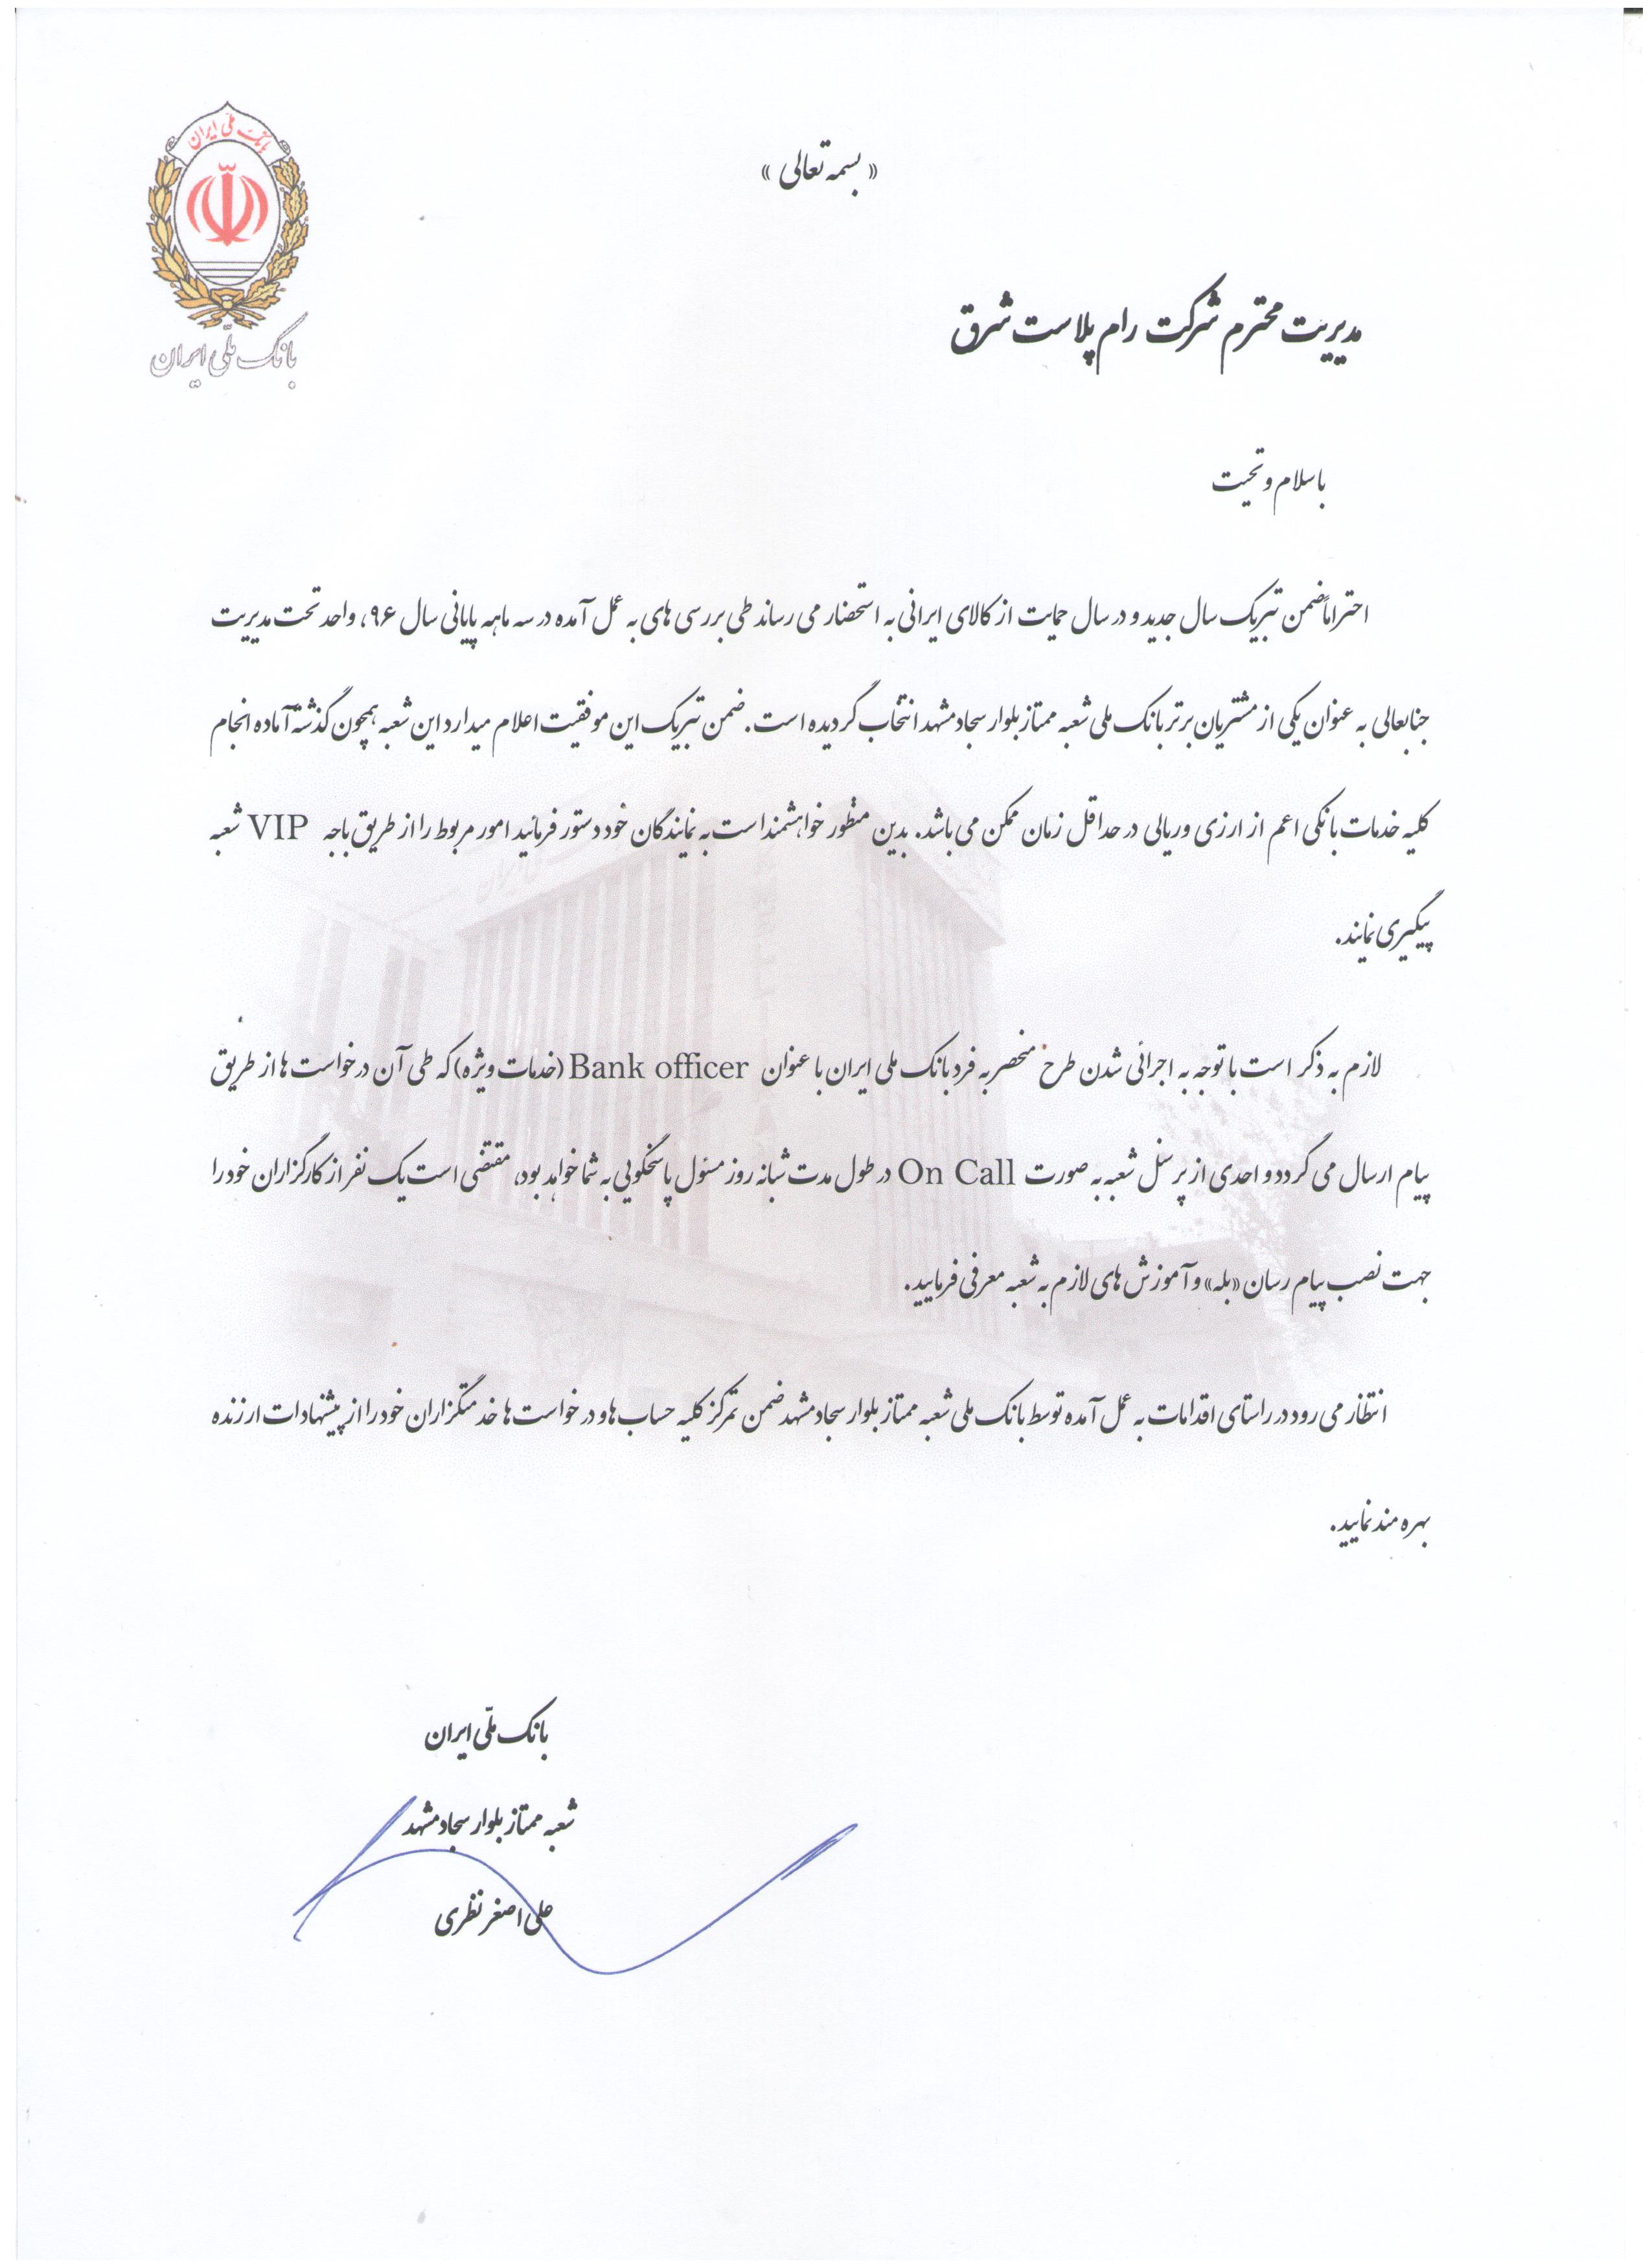 « بسمه تعالی »
بانک ملّی ایران
بانک ملّی ایران
مدیریت محترم شرکت رام پلاست شرق
با سلام و تحیت
احتراماً ضمن تبریک سال جدید و در سال حمایت از کالای ایرانی به استحضار می رساند طی بررسی های به عمل آمده در سه ماهه پایانی سال ۹۶، واحد تحت مدیریت
جنابعالی به عنوان یکی از مشتریان برتر بانک ملی شعبه ممتاز بلوار سجاد مشهد انتخاب گردیده است. ضمن تبریک این موفقیت اعلام میدارد این شعبه همچون گذشته آماده انجام
کلیه خدمات بانکی اعم از ارزی و ریالی در حداقل زمان ممکن می باشد. بدین منظور خواهشمند است به نمایندگان خود دستور فرمائید امور مربوط را از طریق باجه VIP شعبه
پیگیری نمایند.
لازم به ذکر است با توجه به اجرائی شدن طرح منحصر به فرد بانک ملی ایران با عنوان Bank officer (خدمات ویژه) که طی آن درخواست ها از طریق
پیام ارسال می گردد و احدی از پرسنل شعبه به صورت On Call در طول مدت شبانه روز مسئول پاسخگویی به شما خواهد بود، مقتضی است یک نفر از کارگزاران خود را
جهت نصب پیام رسان «بله» و آموزش های لازم به شعبه معرفی فرمایید.
انتظار می رود در راستای اقدامات به عمل آمده توسط بانک ملی شعبه ممتاز بلوار سجاد مشهد ضمن تمرکز کلیه حساب ها و درخواست ها خدمتگزاران خود را از پیشنهادات ارزنده
بهره مند نمایید.
بانک ملّی ایران
شعبه ممتاز بلوار سجاد مشهد
علی اصغر نظری